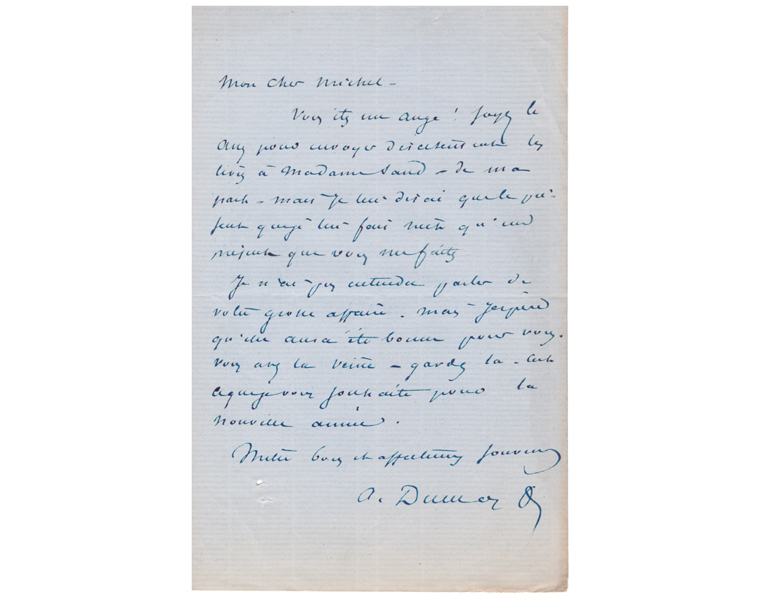 Mon cher Michel –
Vous êtes un ange ! Soyez le
assez pour envoyer directement les
livres à Madame Sand – de ma
part – mais je lui dirai que le pré-
sent que je lui fais n'est qu'un
présent que vous me faites
Je n'ai pas entendu parler de
votre grosse affaire. mais j'espère
qu'elle aura été bonne pour vous.
Vous avez la veine – gardez la – c'est
ce que je vous souhaite pour la
nouvelle année.
Mille bons et affectueux souvenirs
A. Dumas